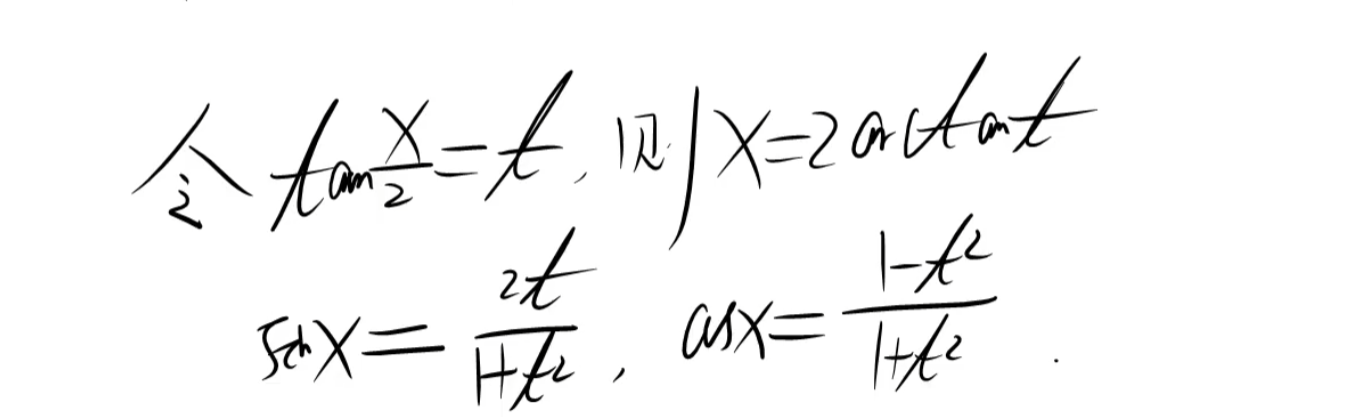 令 tan x/2 = t, 则 x = 2arctan t
sin x = 2t/(1+t²), cos x = (1-t²)/(1+t²).